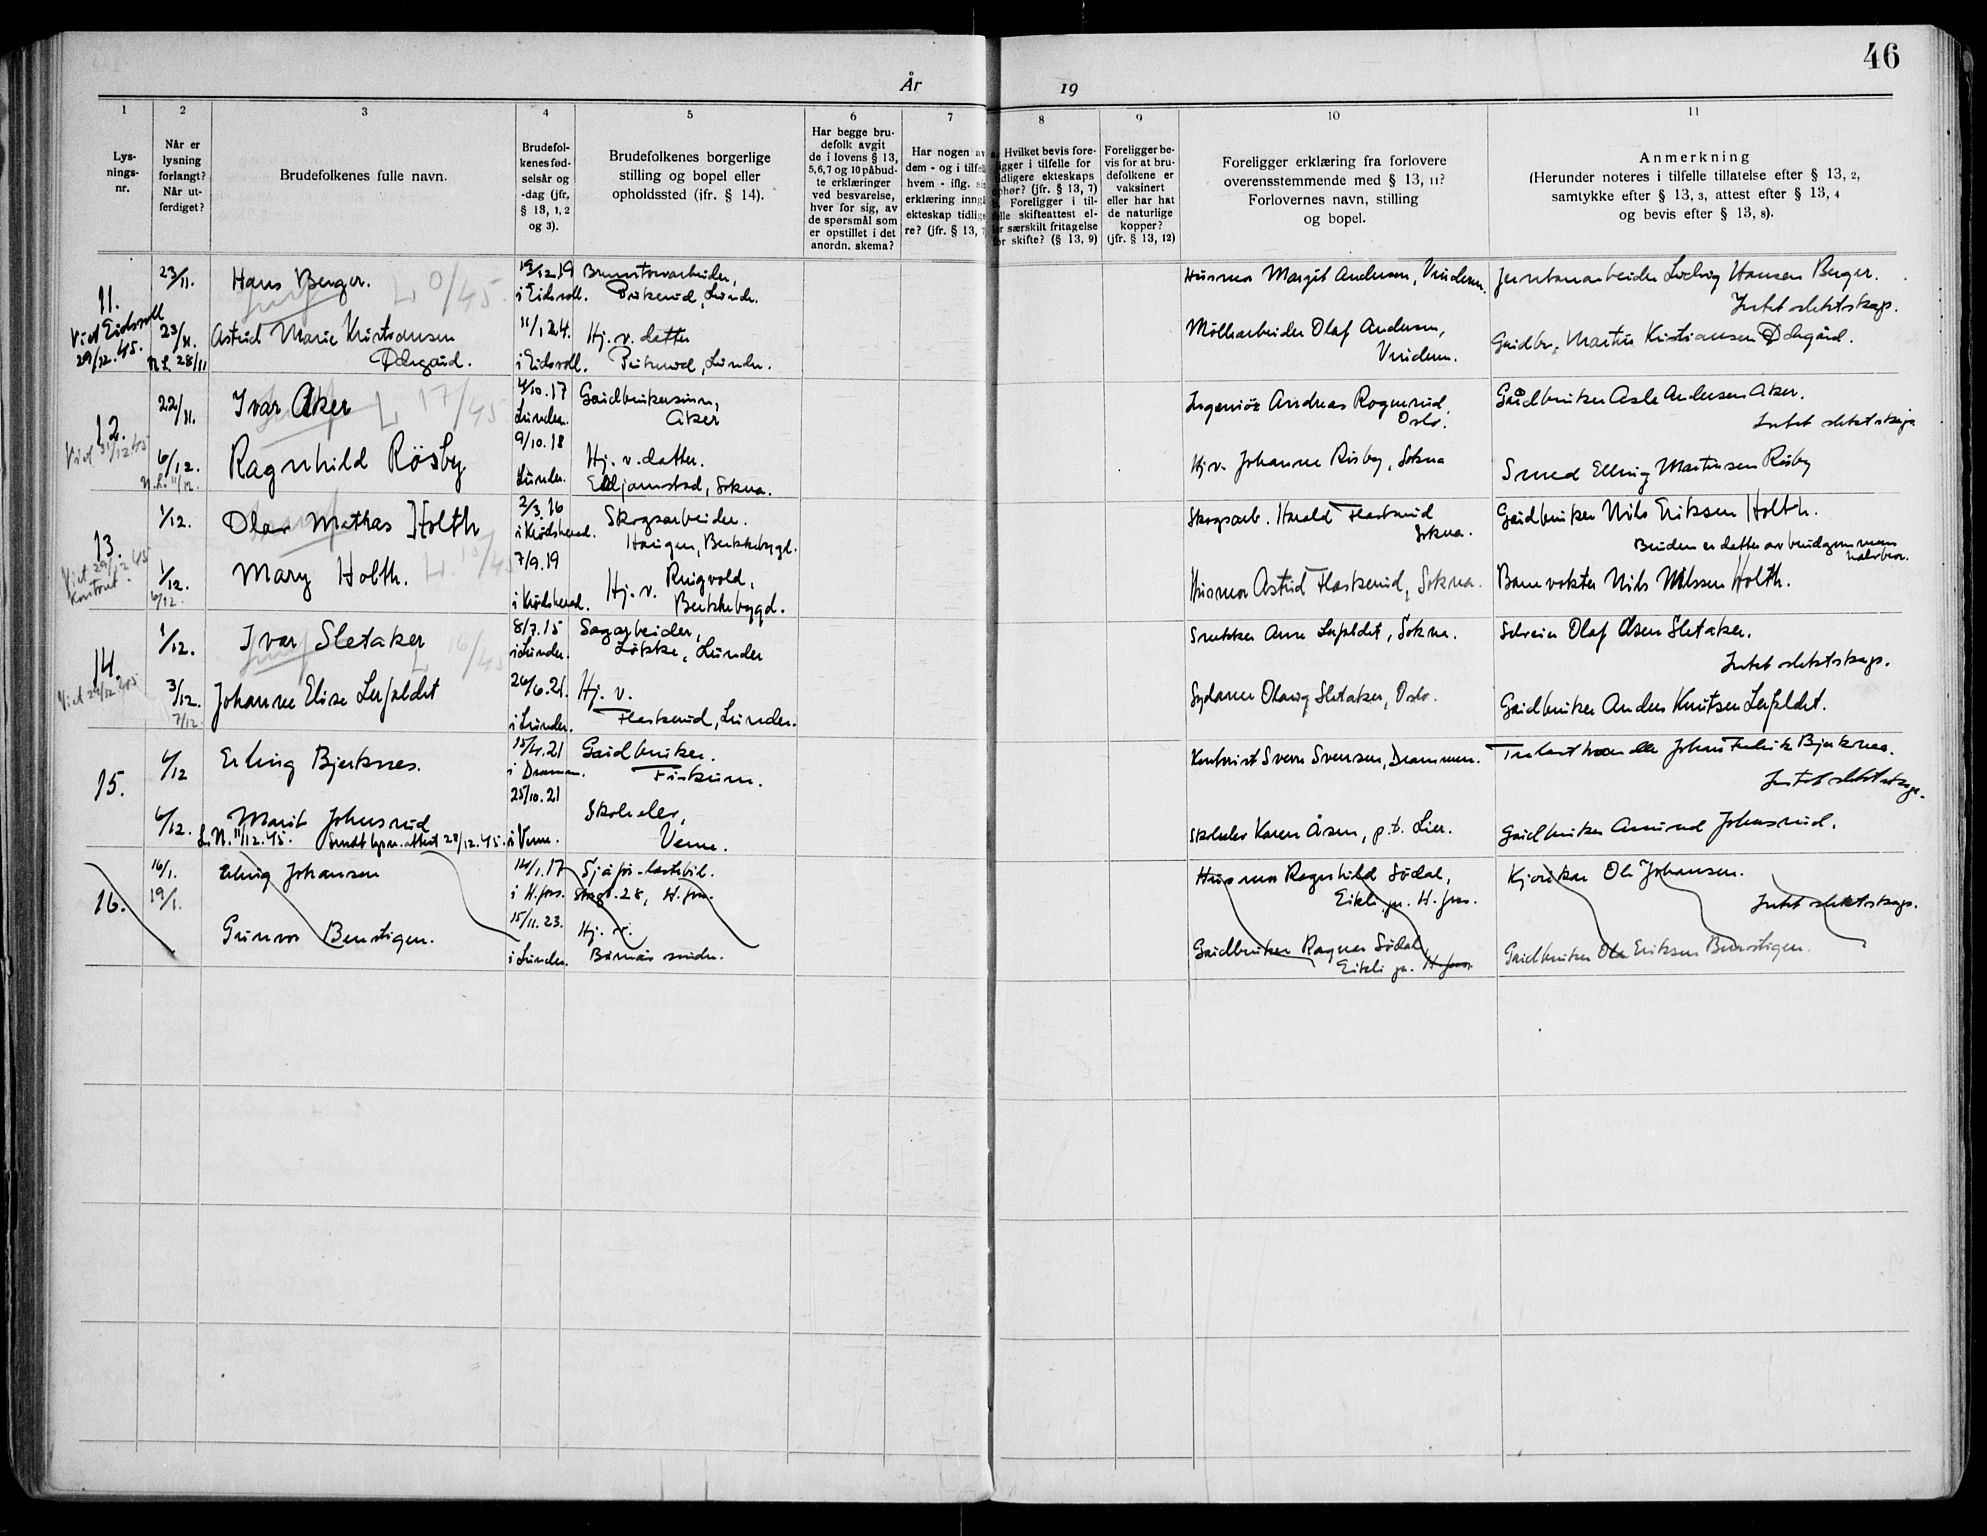 46
År 19
1 2 3 4 5 6 7 8 9 10 11
Lys-
nings-
nr.
Når er
lysning
forlangt?
Når ut-
ferdiget?
Brudefolkenes fulle navn.
Brudefol-
kenes fød-
selsår og
-dag (jfr.
§ 13, 1, 2
og 3).
Brudefolkenes borgerlige
stilling og bopel eller
opholdssted (jfr. § 14).
Har begge bru-
defolk avgit
de i lovens § 13,
5,6,7 og 10 påbud-
te erklæringer
ved besvarelse,
hver for sig, av
de spørsmål som
er opstillet i det
anordn. skema?
Har nogen av
dem - og i tilfel
hvem - iflg. si
erklæring inngå
ekteskap tidlige
re? (jfr. § 13, 7
Hvilket bevis fore-
ligger i tilfelle for
tidligere ekteskaps
ophør? (jfr. § 13, 7)
Foreligger i til-
felle skifteattest el-
ler særskilt fritagelse
for skifte? (§ 13, 9)
Foreligger be-
vis for at bru-
defolkene er
vaksinert
eller har hat
de naturlige
kopper?
(jfr. § 13, 12)
Foreligger erklæring fra forlovere
overensstemmende med § 13, 11?
Forlovernes navn, stilling
og bopel.
Anmerkning
(Herunder noteres i tilfelle tillatelse efter § 13, 2,
samtykke efter § 13, 3, attest efter § 13, 4
og bevis efter § 13, 8).
11.
Viet Eidsvoll
29/12.45.
23/11.
Hans Berger.
19/12.19
i Eidsvoll.
Lunder.
Husmor Margit Andersen,
Ludvig Hansen Berger.
Intet slektskap.
23/11.
N.L. 28/11
Astrid Marie Kristiansen
Ødegård.
11/1.24.
i Eidsvoll.
Hj. v. datter
Lunder.
Møllearbeider Olaf Andersen,
Gårdbr. Martin Kristiansen Ødegård.
12.
Viet 31/12 45
22/11.
Ivar Aker
L 17/45
4/10.17
Lunder.
Gårdbrukersønn,
Aker
Ingeniør Andreas Rognerud,
Oslo.
Gårdbruker Asle Andersen Aker.
Intet slektskap.
6/12.
N.L. 11/12.
Ragnhild Røsby
9/10.18
Lunder.
Hj. v. datter.
Elljarnstad, Sokna.
Hj.v. Johanne Risby, Sokna
Smed Elling Martinsen Røsby
13.
Viet 29/12 45
Kontoret.
1/12.
Olav Mathias Holth
2/3.16
i Krødsherad.
Skogsarbeider.
Haugen,
Skogsarb. Harald Flaskerud
Sokna.
Gårdbruker Nils Eriksen Holth.
Bruden er datter av brudgommens
halvbror.
1/12.
6/12.
Mary Holth.
7/9.19
i Krødsherad.
Hj. v. Ringvold,
Husmor Astrid Flaskerud, Sokna.
Banevokter Nils Nilssen Holth.
14.
Viet 29/12 45
1/12.
Ivar Sletaker
L 16/45
8/7.15
i Lunder.
Sagarbeider,
Løkke, Lunder
Snekker Arne Lerfaldet, Sokna.
Olaf Olsen Sletaker.
Intet slektskap.
3/12.
7/12.
Johanne Elise Lerfaldet
26/6.21.
i Lunder.
Hj. v.
Flaskerud, Lunder.
Sydame Olaug Sletaker, Oslo.
Gårdbruker Anders Knutsen Lerfaldet.
15.
6/12
Erling Bjerknes.
15/4.21
i Drammen.
Gårdbruker.
Fiskum.
Kontorist Sverre Svensen, Drammen.
Trelasthandler Johan Fredrik Bjerknes.
Intet slektskap.
6/12.
Marit Johnsrud
L.N. 11/12.45. Sendt lysn.attest 28/12.45.
25/10.21
i Veme.
Skoleelev,
Veme.
Skoleelev Karen Åsen, p.t. Lier.
Gårdbruker Amund Johnsrud.
16.
16/1.
19/1.
Erling Johansen
14/1.17
i H.foss.
Sjåfør - lastebil.
Storgt. 28, H.foss.
Husmor Ragnhild Sødal,
Eikli pr. H.foss.
Ole Johansen.
Intet slektskap.
Gunvor Benstigen.
15/11.23.
i Lunder.
Hj. v.
Gårdbruker Ragnar Sødal,
Eikli pr. H.foss.
Gårdbruker Ole Eriksen Benstigen.